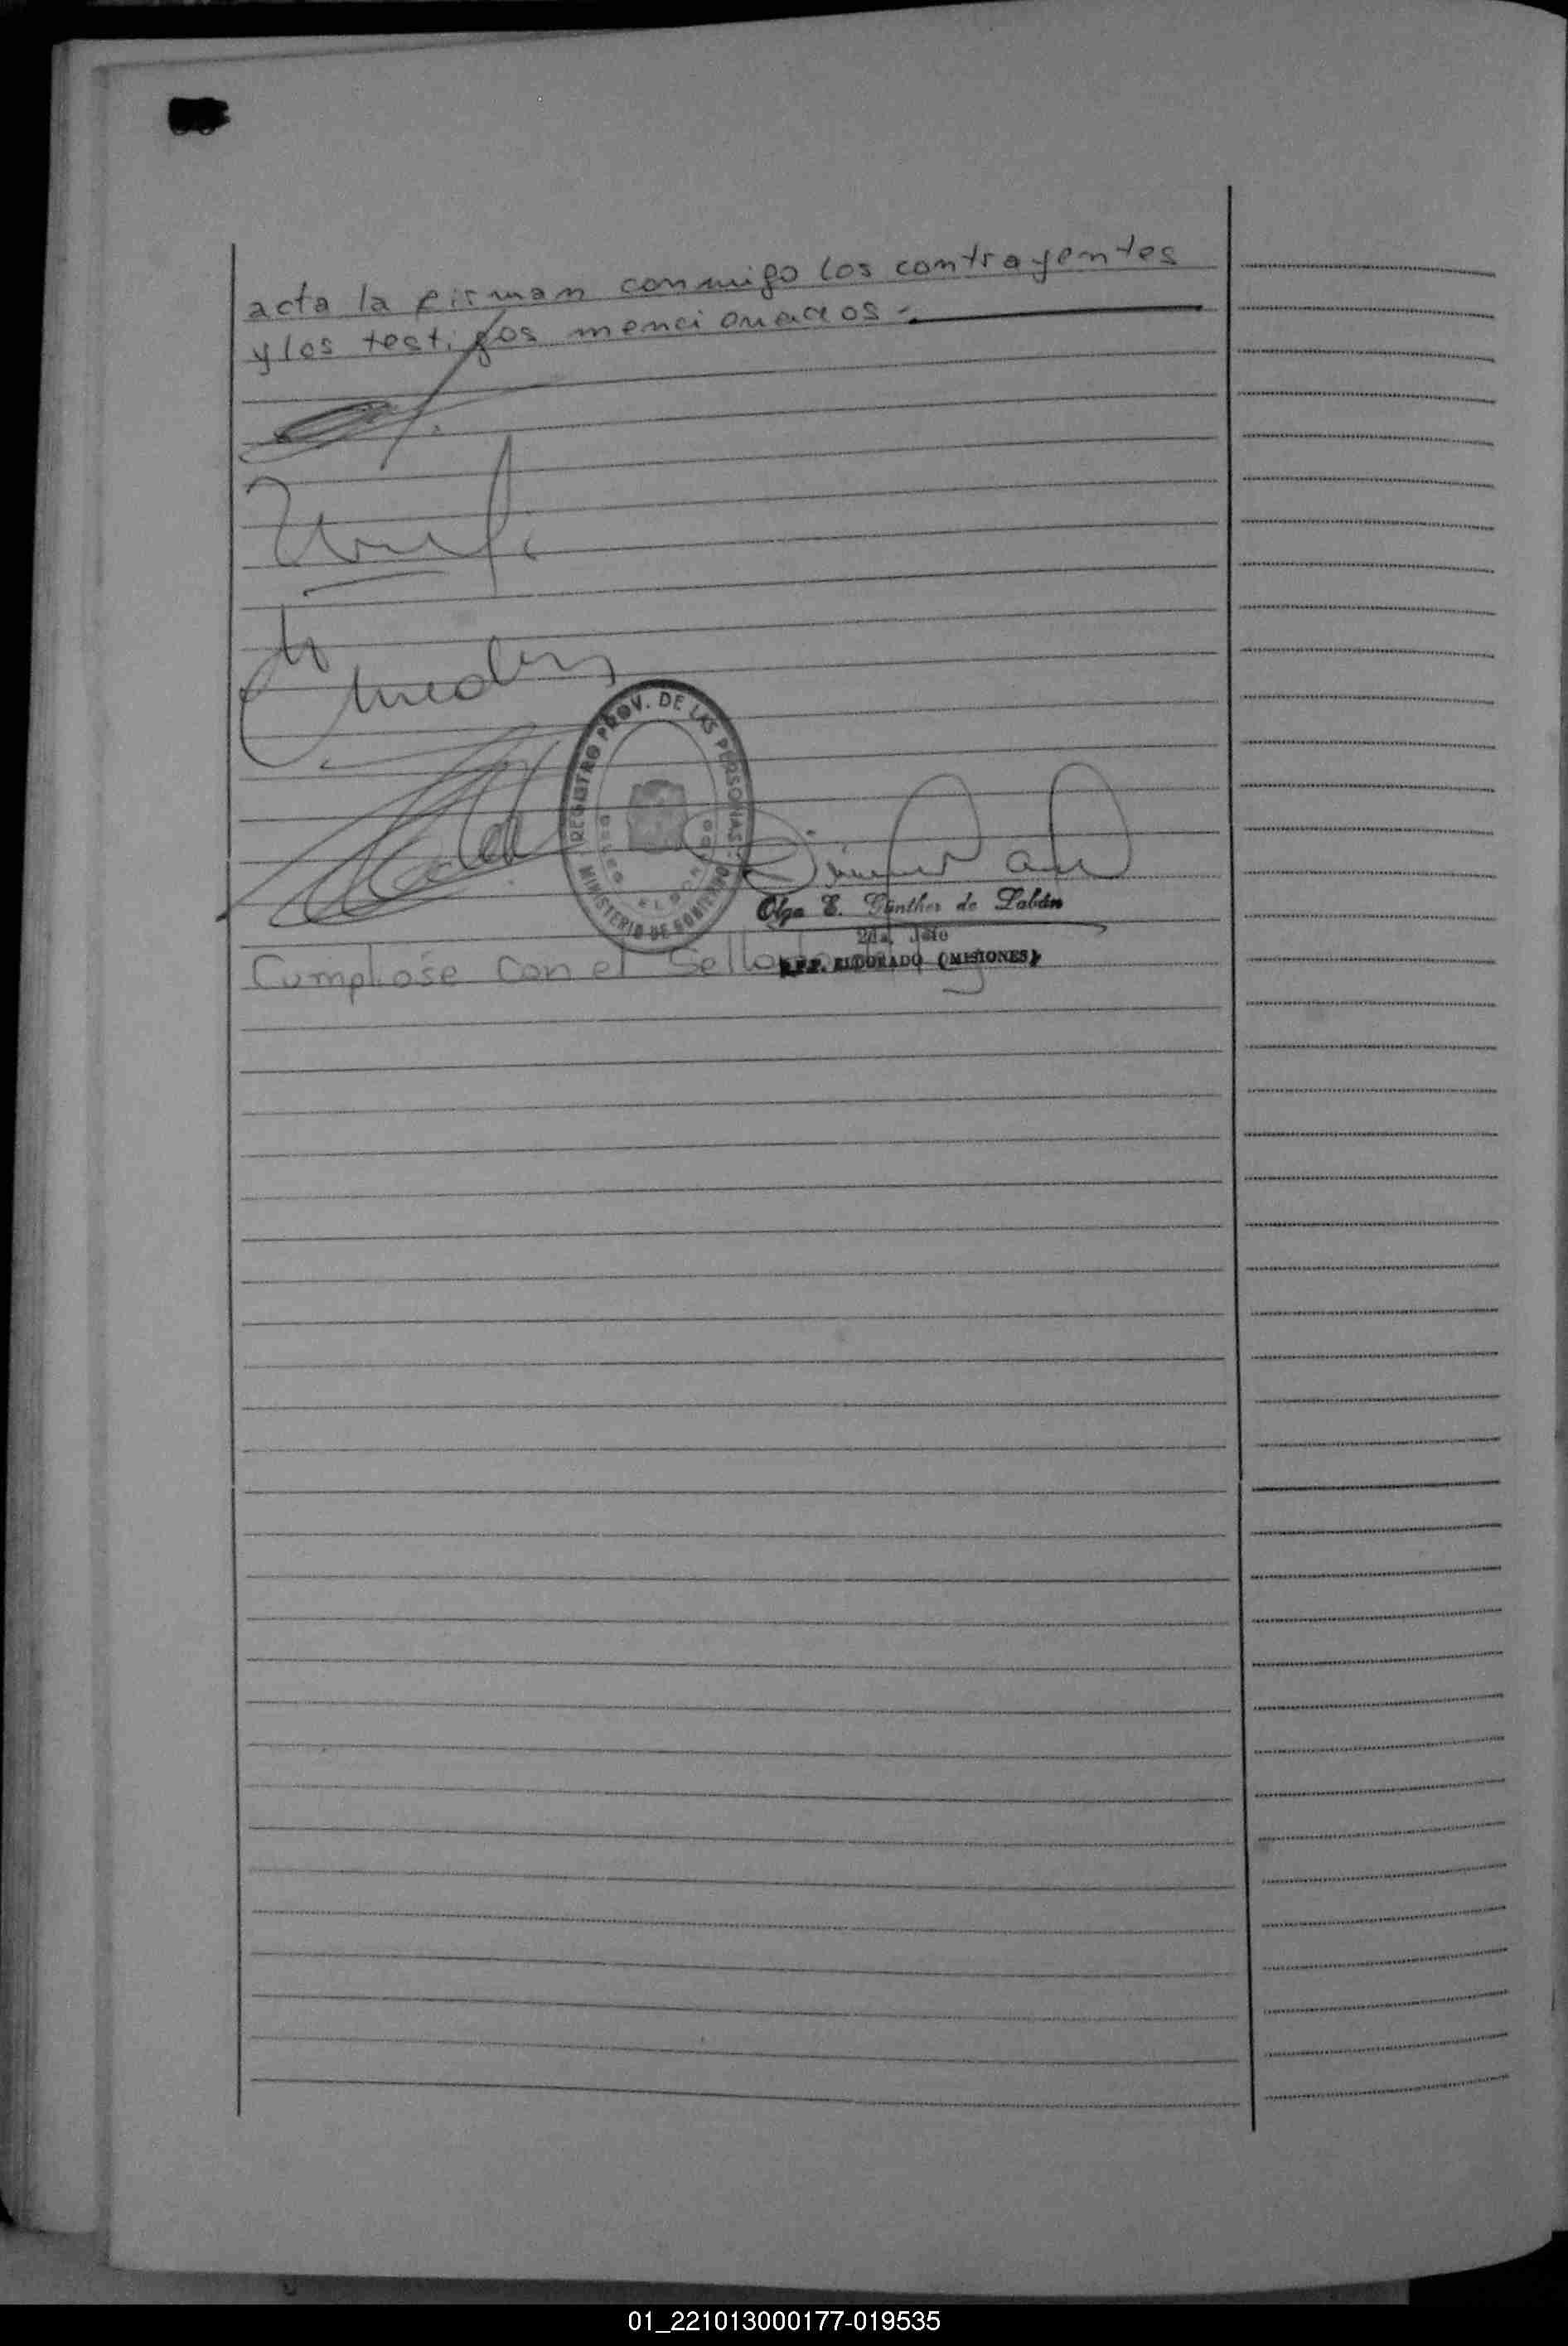 acta la firman conmigo los contrayentes
y los testigos mencionados -
REGISTRO PROV. DE LAS PERSONAS
MINISTERIO DE GOBIERNO
ELDORADO
Olga E. Günther de Labán
2da. Jefe
R.P.P. ELDORADO (MISIONES)
Cumpliose con el Sellado
01_221013000177-019535